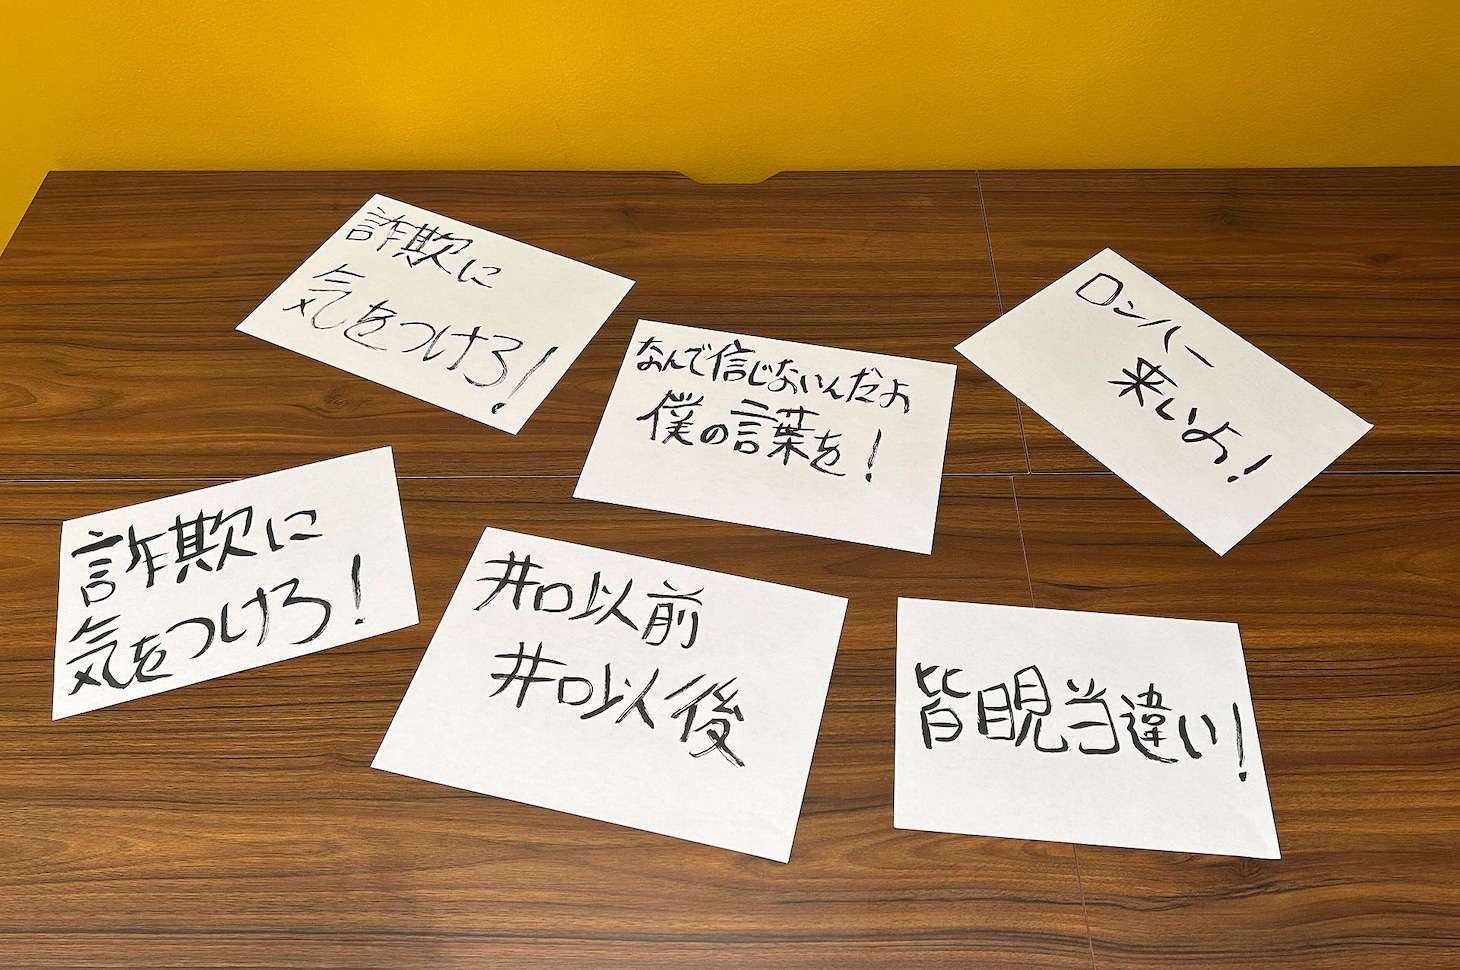 詐欺に
気をつけろ！
なんで信じないんだよ
僕の言葉を！
ロンハー
来いよ！
詐欺に
気をつけろ！
井口以前
井口以後
皆見当違い！